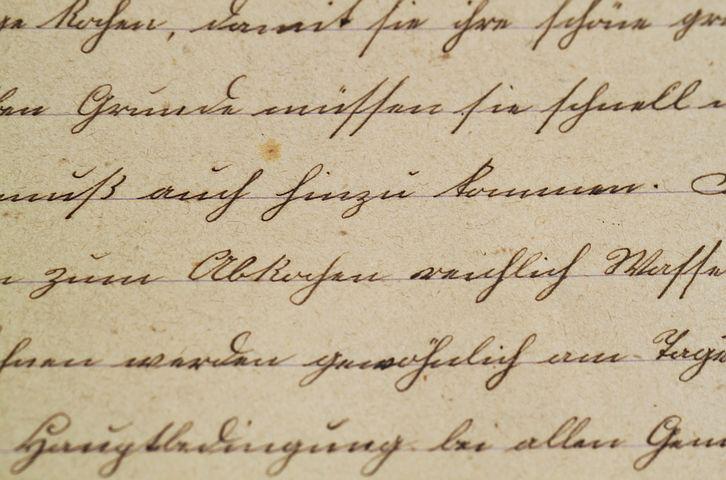 ge kochen, damit sie ihre schöne gr
ben Grunde müssen sie schnell
muß auch hinzu kommen.
n zum Abkochen reichlich Wasse
hnen werden gewöhnlich am Tage
Hauptbedingung bei allen Gem